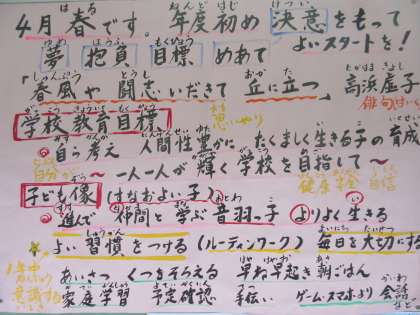 4月 春です。 年度初め 決意をもって
夢 抱負 目標 めあて よいスタートを!
「春風や 闘志いだきて 丘に立つ」 高浜虚子
俳句は
学校教育目標 思いやり
・自ら考え 人間性豊かに たくましく生きる子の育成
～一人一人が輝く学校を目指して～
自分 健康 自信
子ども像 (すなおよい子)
・進んで 仲間と 学ぶ 音羽っ子 よりよく 生きる
よい習慣をつける (ルーティンワーク) 毎日を大切にする
1年中 意識する
あいさつ くつをそろえる 早ね早起き朝ごはん
家庭学習 予定確認 手伝い ゲーム・スマホより会話
など